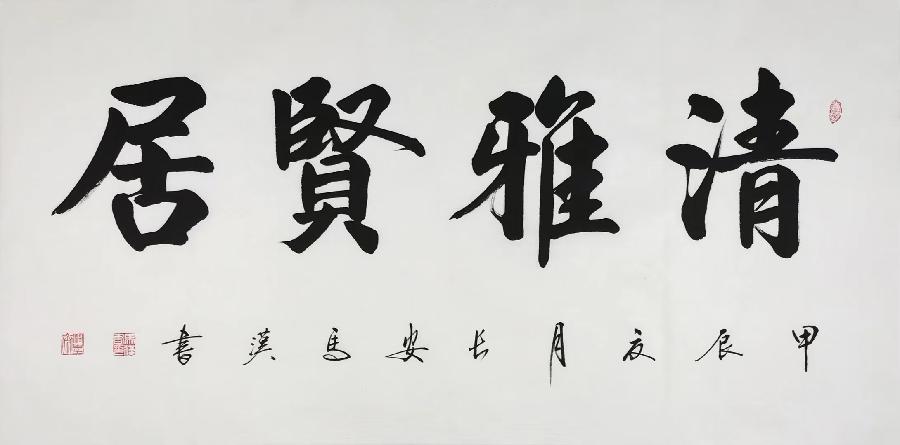 清雅賢居
甲辰夏月长安馬漢書